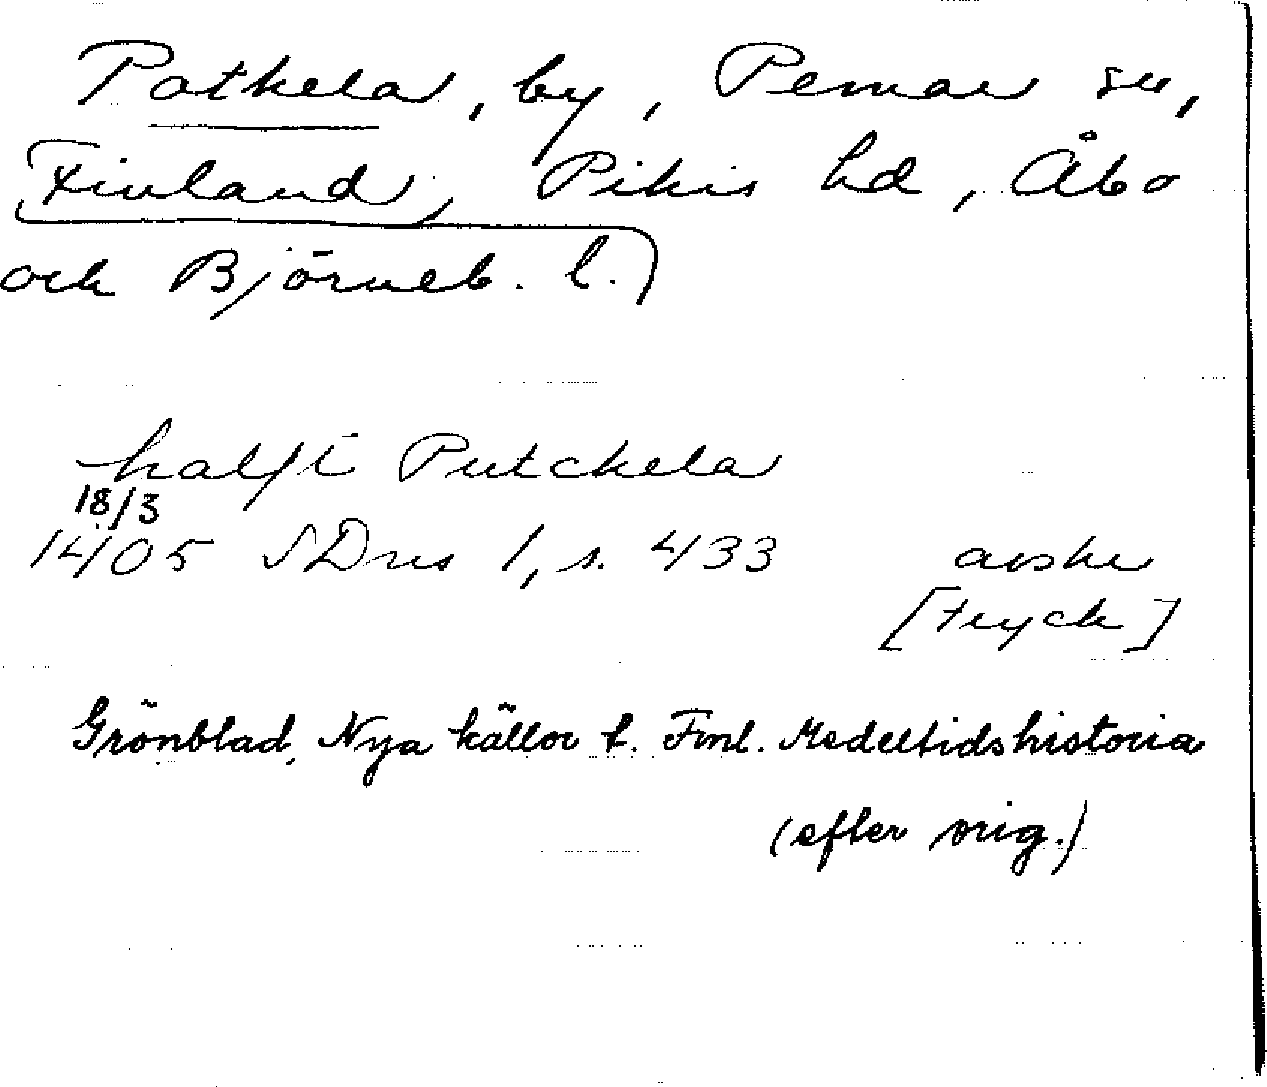 Potkela, by, Pemar sn,
Finland, Pikis hd, Åbo
och Björneb. l.)
halft Putckela
18/3
1405 SDns 1, s. 433 avskr
[tryck]
Grönblad, Nya källor t. Finl. Medeltidshistoria
(efter orig.)